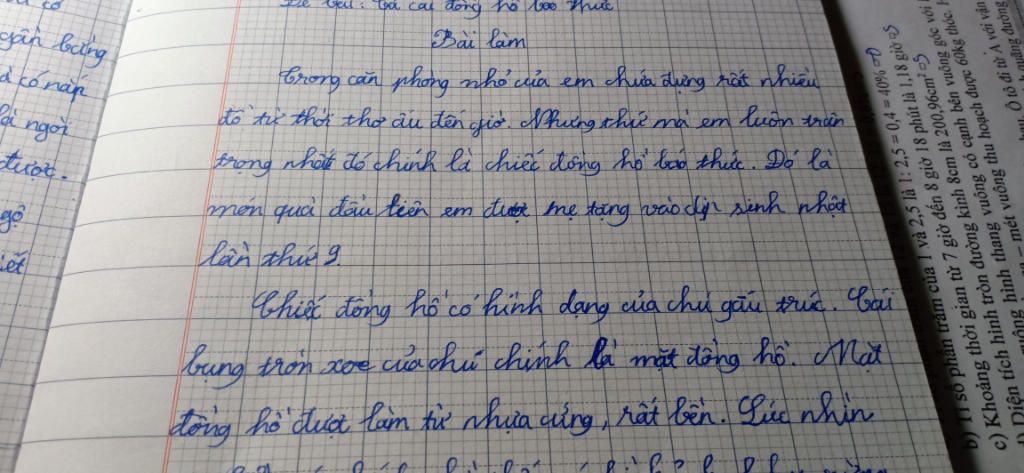 Đề bài: Tả cái đồng hồ báo thức
Bài làm
Trong căn phòng nhỏ của em chứa đựng rất nhiều
đồ từ thời thơ ấu đến giờ. Nhưng thứ mà em luôn trân
trọng nhất đó chính là chiếc đồng hồ báo thức. Đó là
món quà đầu tiên em được mẹ tặng vào dịp sinh nhật
lần thứ 9.
Chiếc đồng hồ có hình dạng của chú gấu trúc. Cái
bụng tròn xoe của chú chính là mặt đồng hồ. Mặt
đồng hồ được làm từ nhựa cứng, rất bền. Lúc nhìn
có
gần bằng
à có nắp
là ngòi
được.
gỗ
iết
b) Tỉ số phần trăm của 1 và 2,5 là 1: 2,5 = 0,4 = 40% => Đ
c) Khoảng thời gian từ 7 giờ đến 8 giờ 18 phút là 1,18 giờ => S
hình tròn đường kính 8cm là 200,96cm² => S
Diện tích hình thang vuông có cạnh bên vuông góc với
mét vuông thu hoạch được 60kg thóc.
Ô tô đi từ A với vận
quãng đường